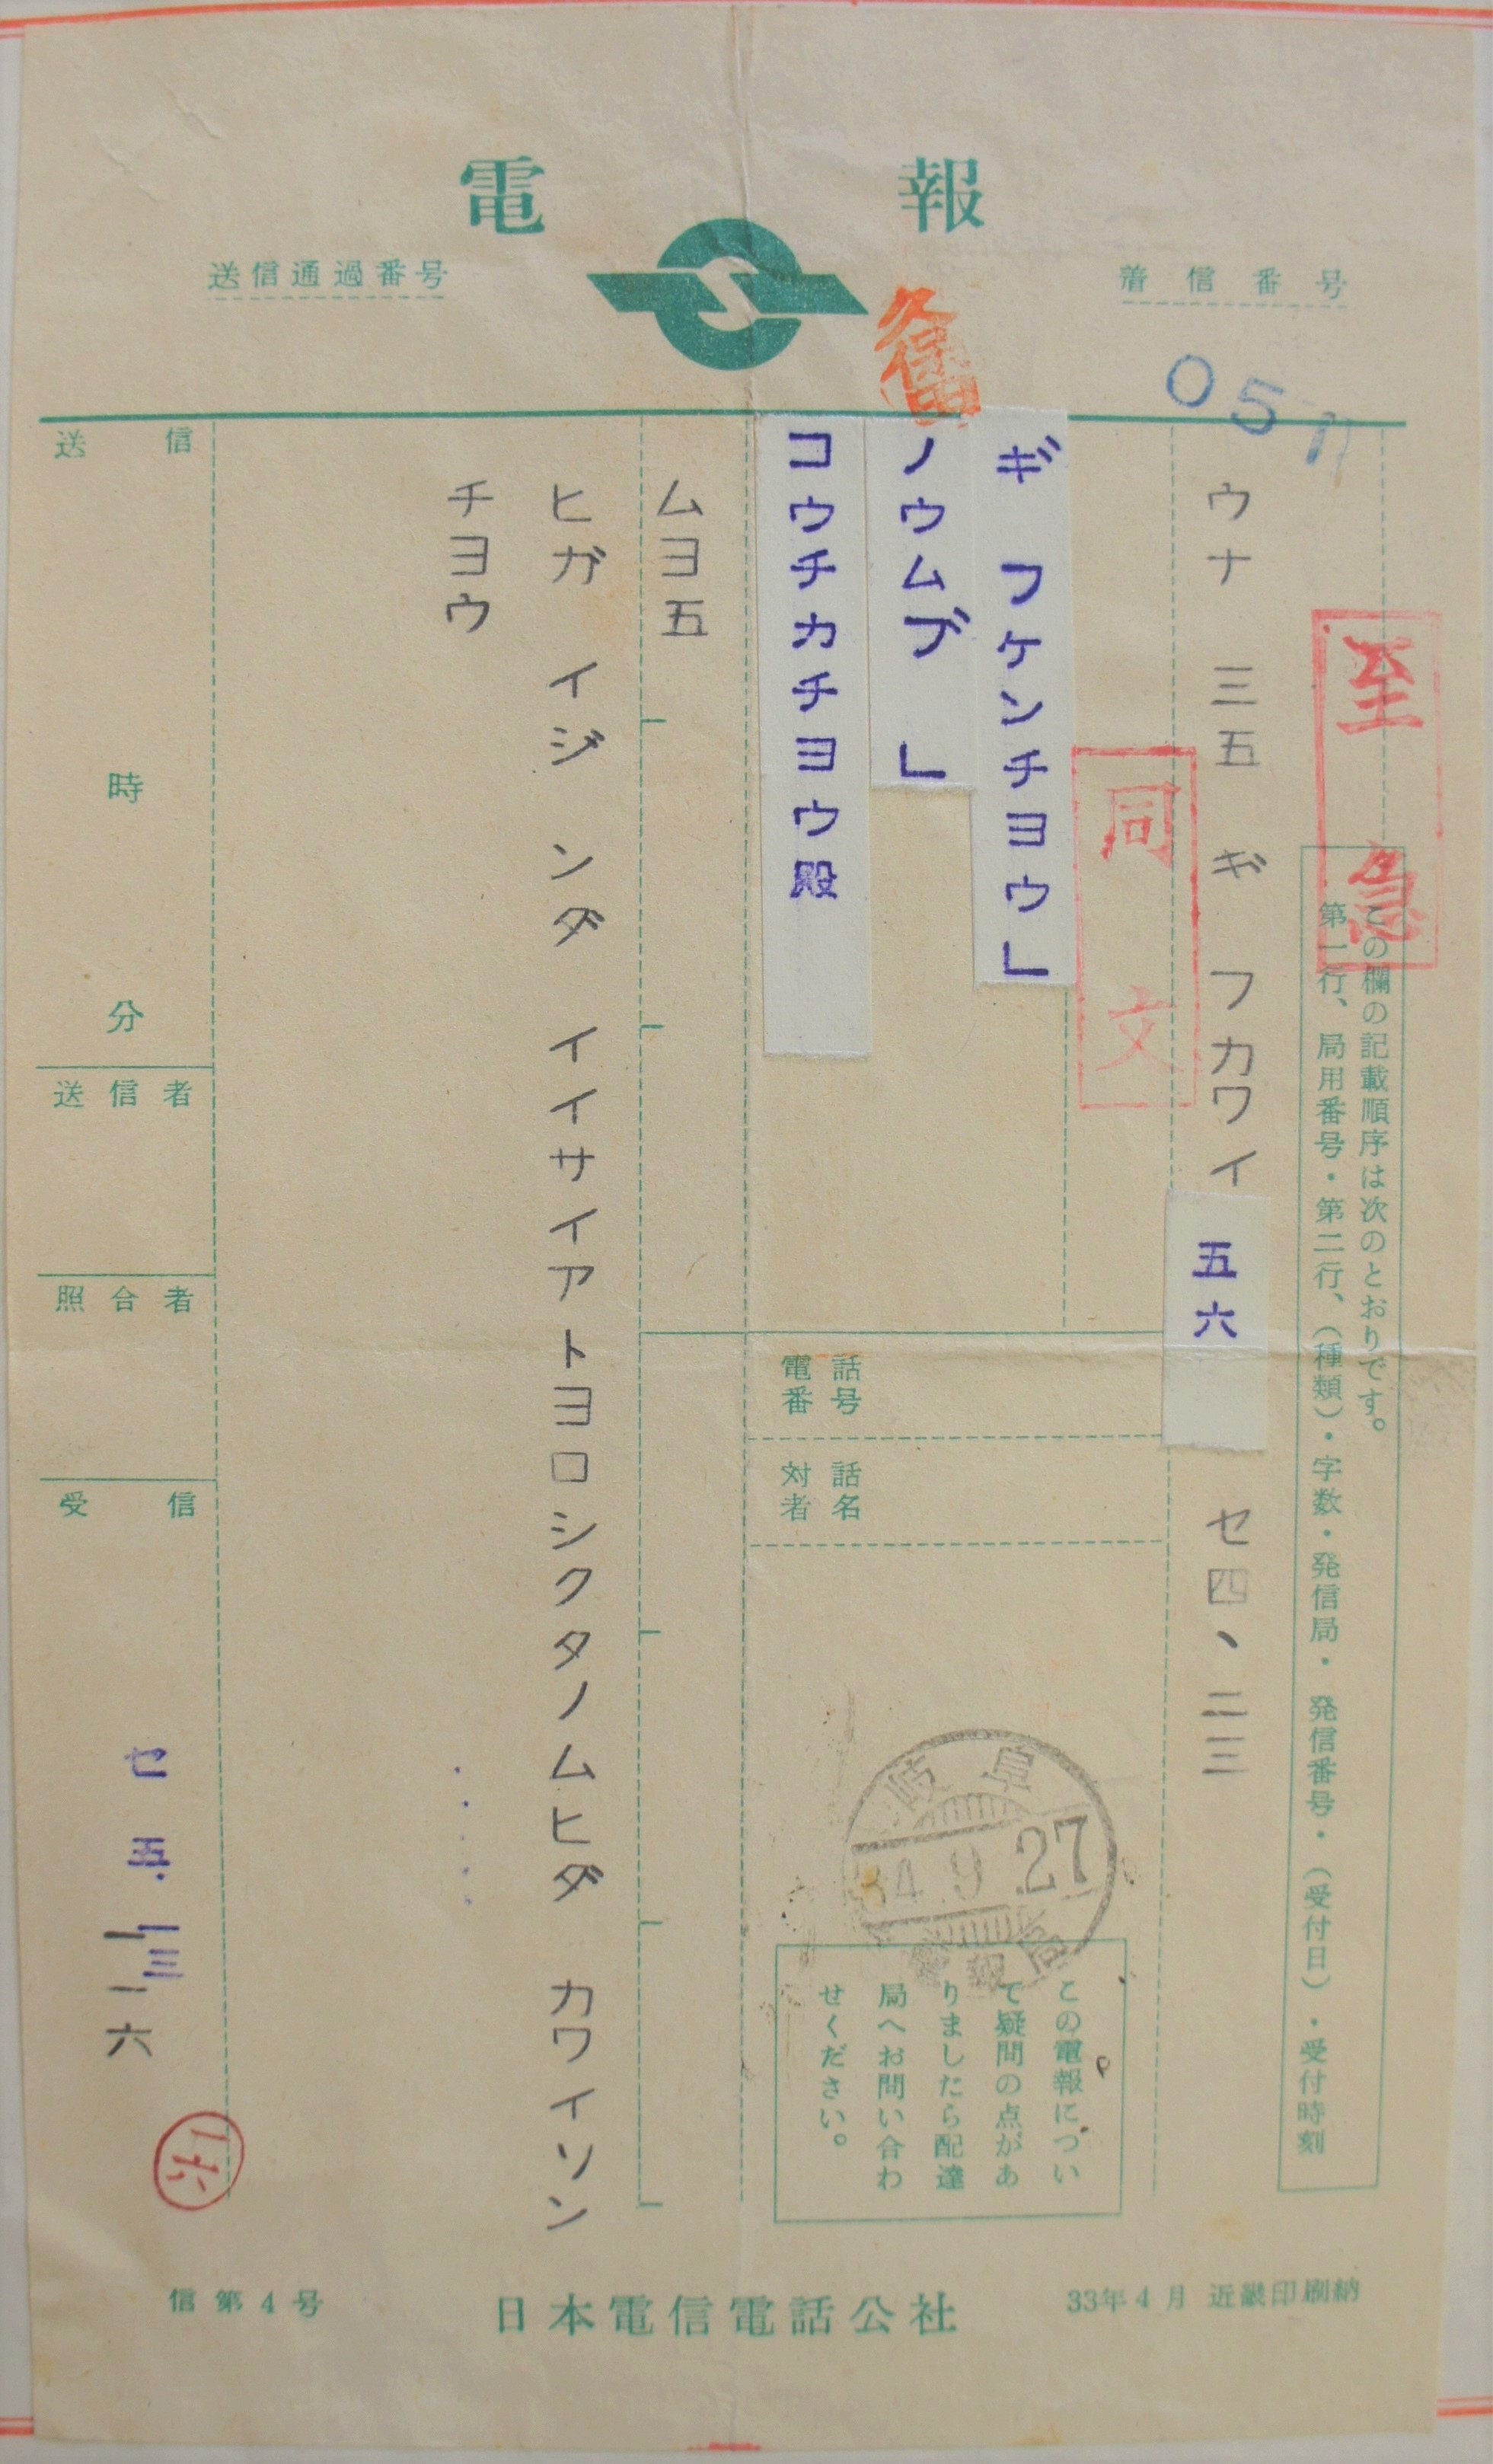 電報
送信通過番号
着信番号
05
至急
この欄の記載順序は次のとおりです。
第一行、局用番号・第二行、（種類）・字数・発信局・発信番号・（受付日）・受付時刻
ウナ 三五 ギ フカワイ 五六 セ四、二三
同文
ギ フケンチヨウ」
ノウムブ 」
コウチカチヨウ殿
電話番号
対話者名
岐阜
34.9.27
電報局
この電報につい
て疑問の点があ
りましたら配達
局へお問い合わ
せください。
ムヨ五
ヒガ イジ ンダ イイサイアトヨロシクタノムヒダ カワイソン
チヨウ
送信
時
分
送信者
照合者
受信
セ 五、
六
信第4号
日本電信電話公社
33年4月 近畿印刷納